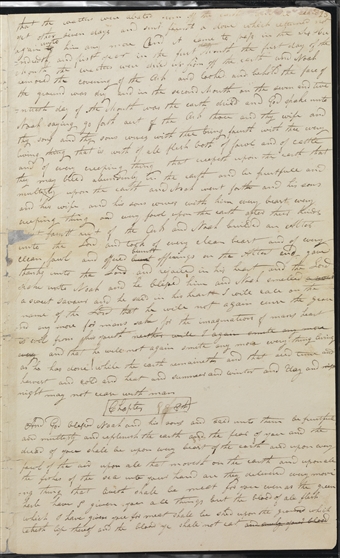 that the waters were abated from off the
yet other seven days and sent forth a dove which returned not
again unto him any more And it came to pass in the six hun
dredth and first year in the first month the first day of the
month the waters were dried up from off the earth and Noah
removed the covering of the Ark and looked and behold the face of
the ground was dry and in the second month on the seven and twe
ntieth day of the month was the earth dried and God spake unto
Noah saying go forth out of the Ark thou and thy wife and
thy sons and thy sons wives with thee bring forth with thee every
living thing that is with thee of all flesh both of fowl and of cattle
and of every creeping thing that creepeth upon the earth that
they may breed abundantly in the earth and be fruitful and
multiply upon the earth and Noah went forth and his sons
and his wife and his sons wives with him every beast every
creeping thing and every fowl upon the earth after their kinds
went forth out of the Ark and Noah builded an altar
unto the Lord and took of every clean beast and of every
clean fowl and offered burnt offerings on the Altar and gave
thanks unto the Lord and rejoiced in his heart and the Lord
spake unto Noah and he blessed him and Noah smelled
a sweet savour and he said in his heart I will call on the
name of the Lord that he will not again curse the ground
any more for mans sake for the imagination of mans heart
is evil from his youth
and that he will not again smite any more every thing living
as he has done while the earth remaineth and that seed time and
harvest and cold and heat and summer and winter and day and
night may not cease with man
Chapter
And God blessed Noah and his sons and said unto them be fruitful
and multiply and replenish the earth and the fear of you and the
dread of you shall be upon every beast of the earth and upon every
fowl of the air upon all that moveth on the earth and upon all
the fishes of the sea into your hand are they delivered every mov
ing thing that liveth shall be meat for you even as the green
herb have I given you all things but the blood of all flesh
which I have given you for meat shall be shed upon the ground which
taketh life thereof and the blood ye shall not eat